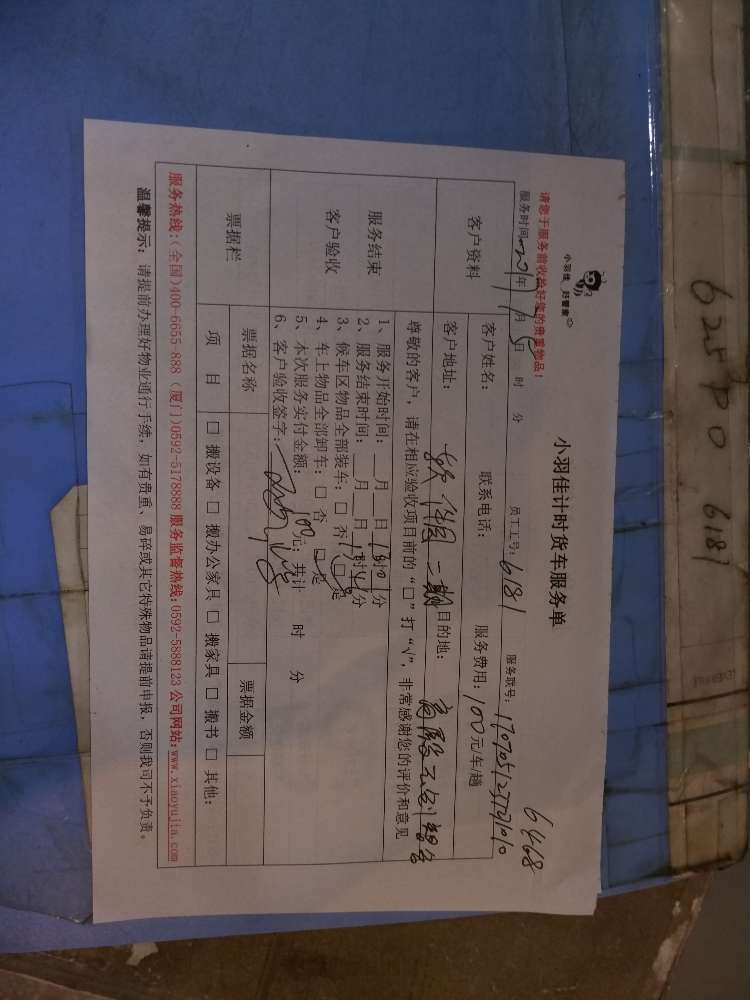 625P0 6181
6468
小羽佳 好管家
请您于服务前收拾好您的贵重物品！
小羽佳计时货车服务单
服务时间 年 月 日 时 分 员工工号：6181 服务联号：
客户资料
客户姓名： 联系电话： 服务费用：100元/车/趟
客户地址： 二期 目的地：
服务结束
客户验收
尊敬的客户，请在相应验收项目前的“□”打“√”，非常感谢您的评价和意见
1、服务开始时间：__月__日 时 分
2、服务结束时间：__月__日 时 分
3、候车区物品全部装车：□ 否 □ 是
4、车上物品全部卸车：□ 否 □ 是
5、本次服务实付金额：100元；共计 时 分
6、客户验收签字：
票据栏
票据名称 票据金额
项 目 □ 搬设备 □ 搬办公家具 □ 搬家具 □ 搬书 □ 其他：
服务热线：(全国)400-6655-888 (厦门)0592-5178888 服务监督热线：0592-5888123 公司网站：www.xiaoyujia.com
温馨提示：请提前办理好物业通行手续，如有贵重、易碎或其它特殊物品请提前申报，否则我司不予负责。